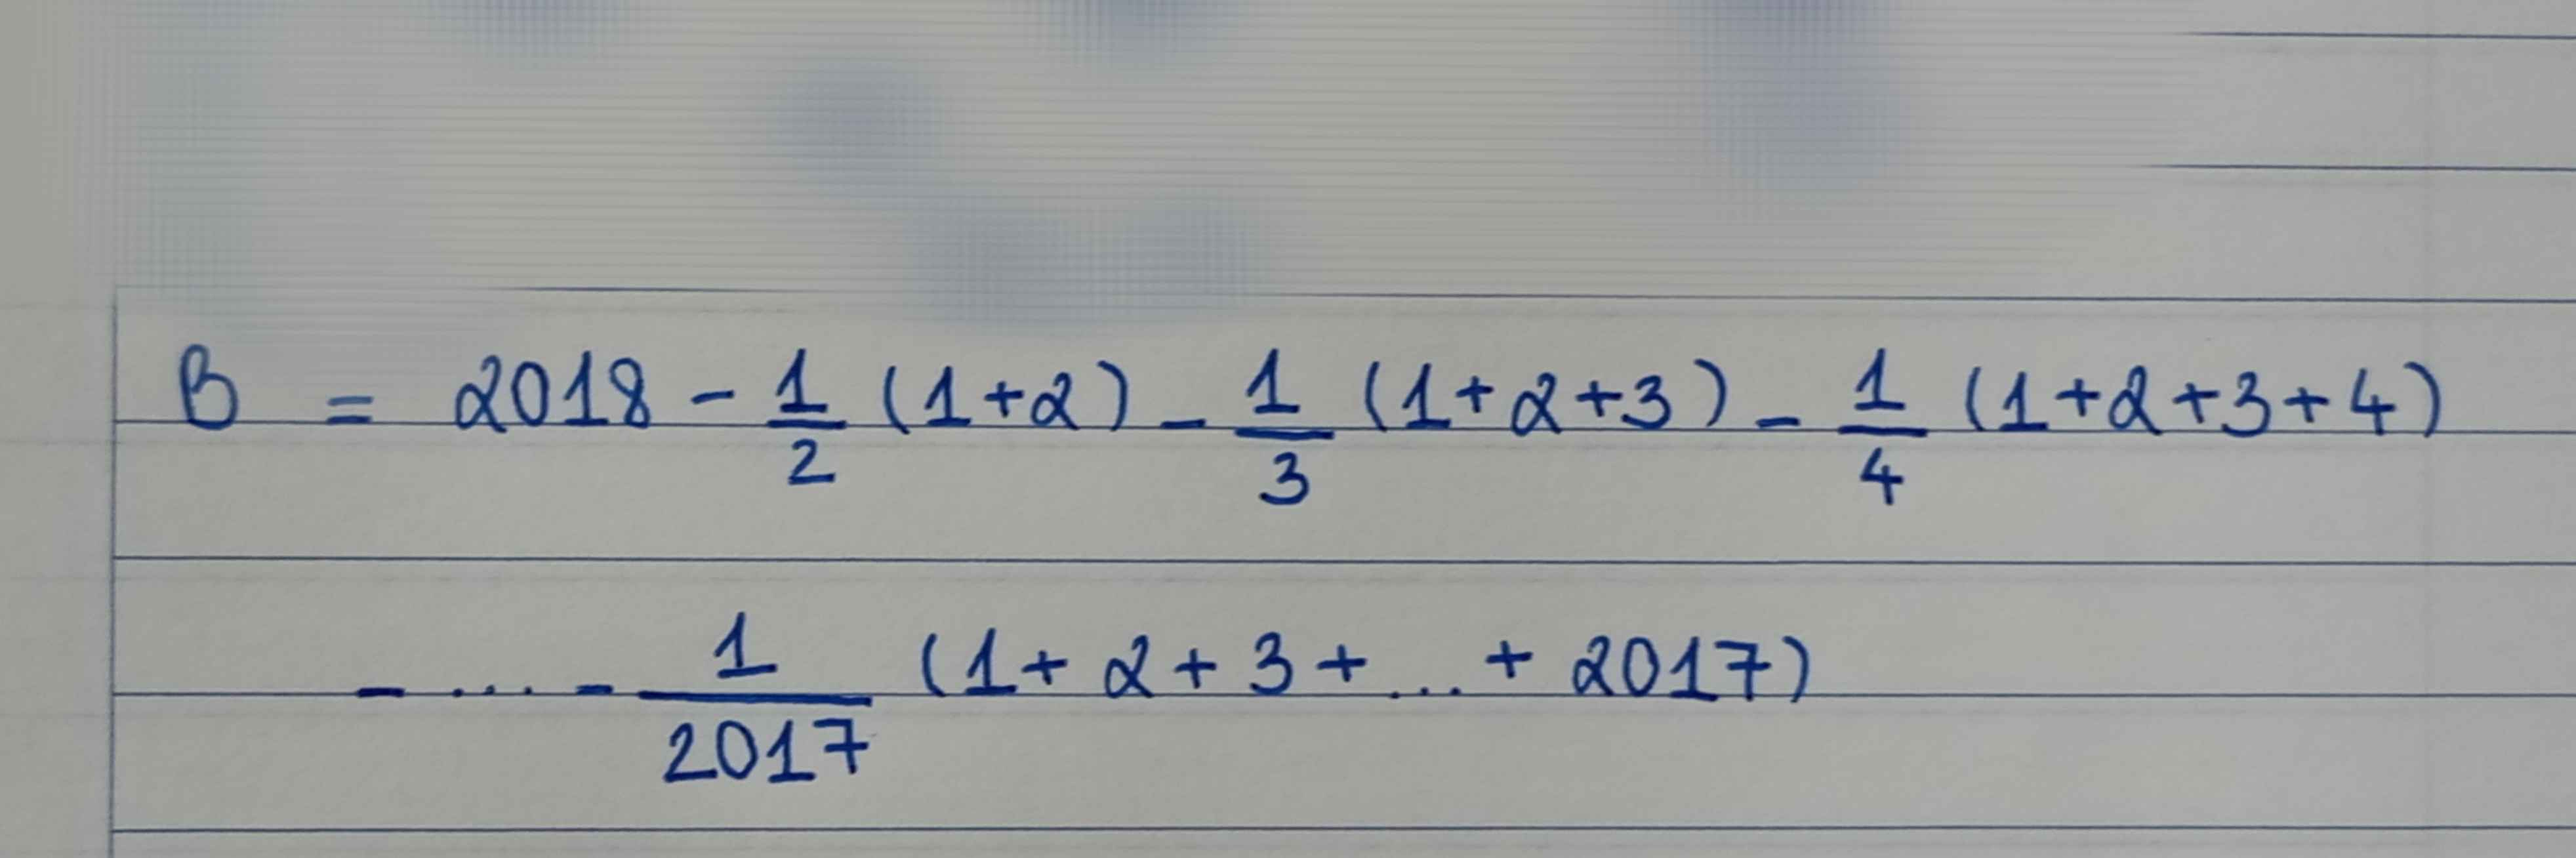 B = 2018 - 1/2 (1+2) - 1/3 (1+2+3) - 1/4 (1+2+3+4)
- .... - 1/2017 (1+2+3+...+2017)